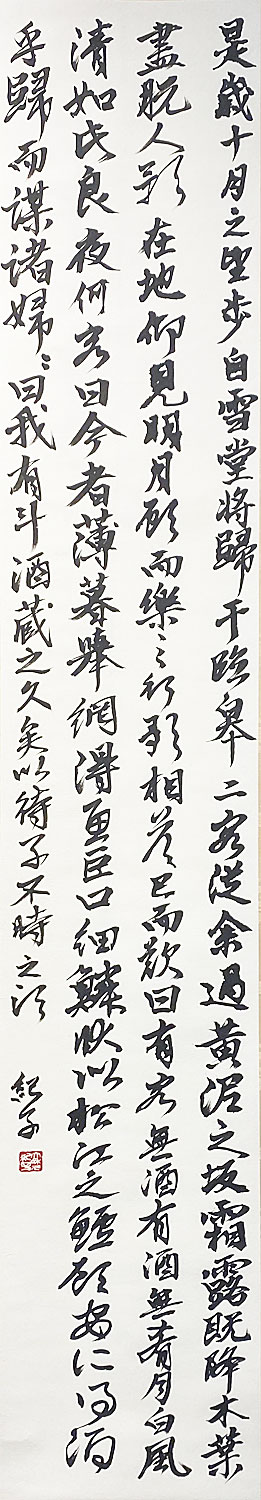 是歲十月之望步自雪堂將歸于臨皋二客從余過黃泥之坂霜露既降木葉
盡脫人影在地仰見明月顧而樂之行歌相答已而歎曰有客無酒有酒無肴月白風
清如此良夜何客曰今者薄暮舉網得魚巨口細鱗狀似松江之鱸顧安所得酒
乎歸而謀諸婦〻曰我有斗酒藏之久矣以待子不時之須
紀子